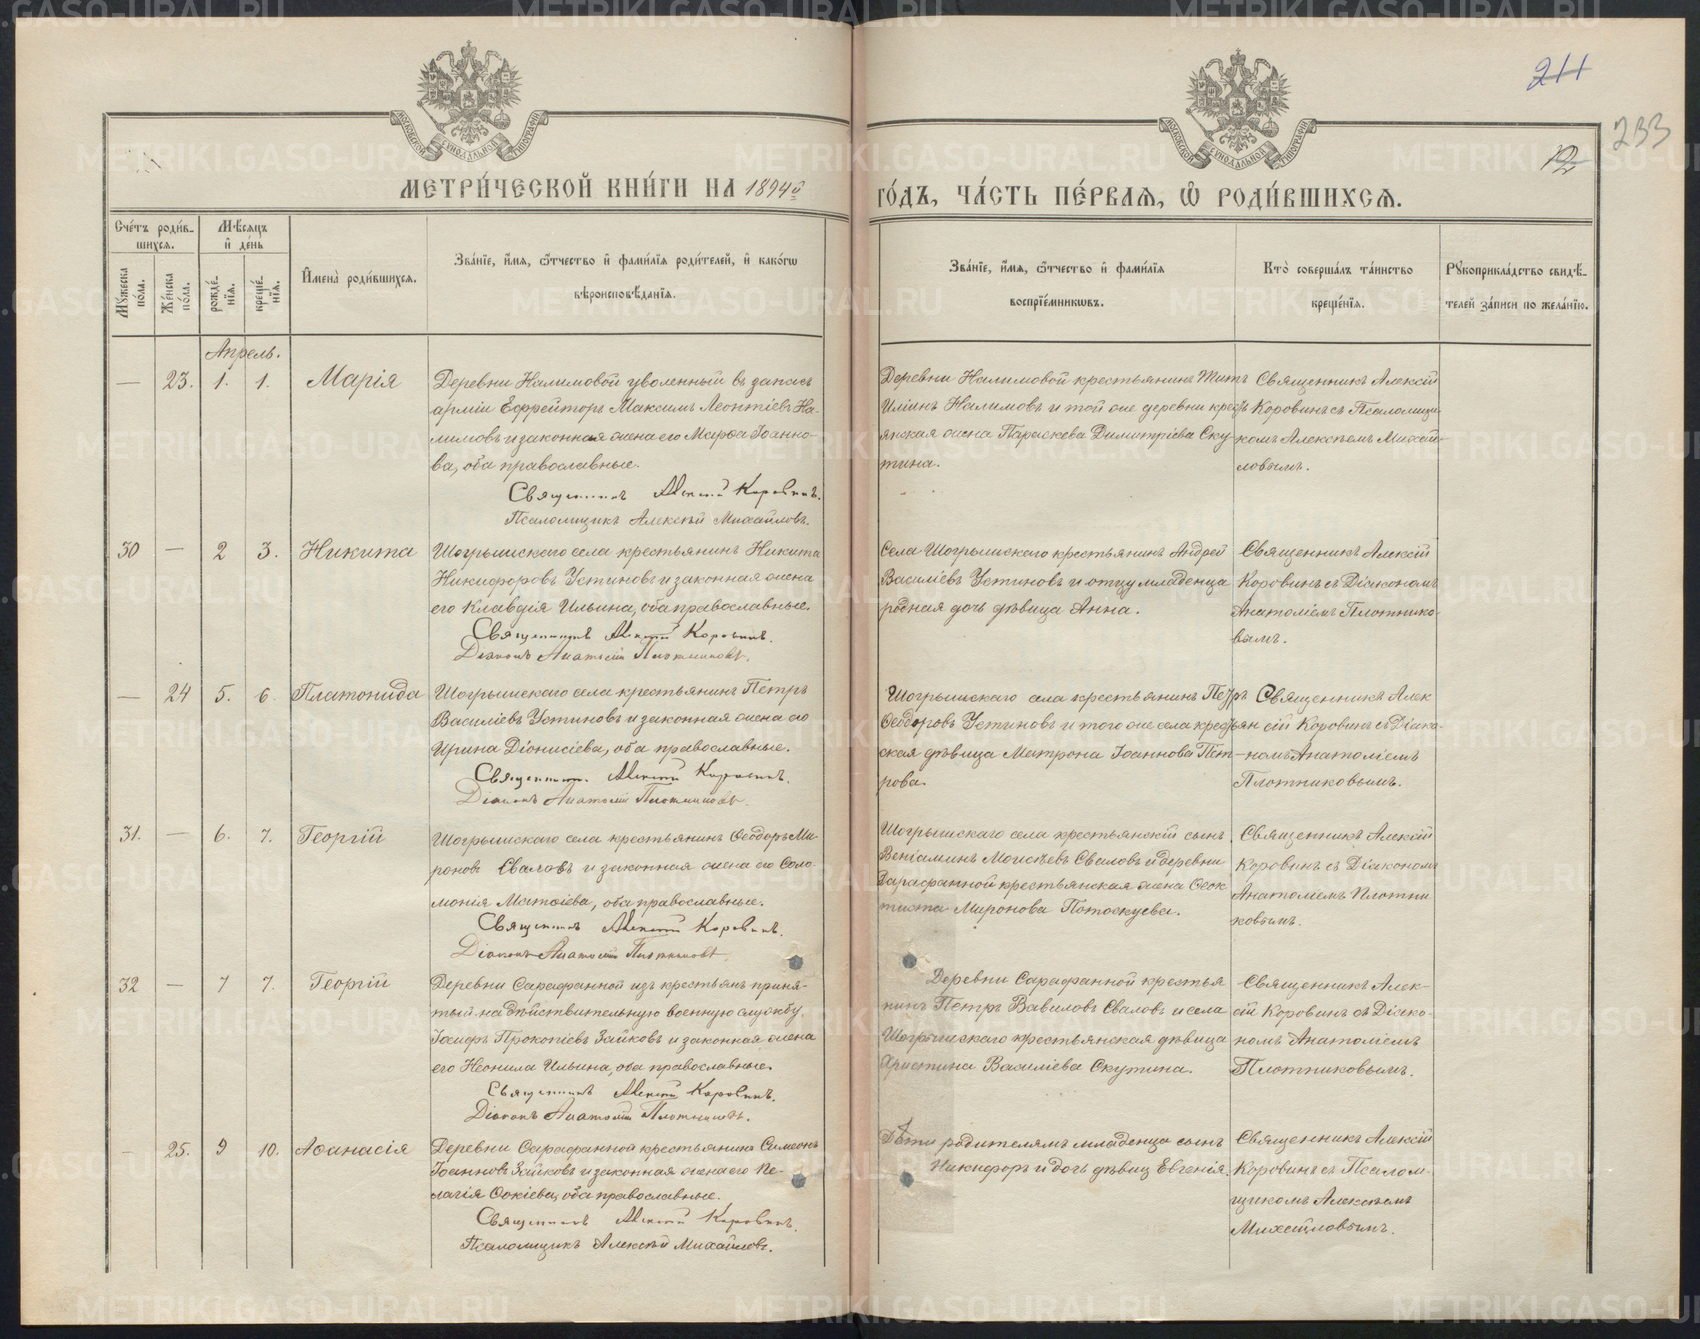 211
233
12
МЕТРИ́ЧЕСКОЙ КНИ́ГИ НА 1894й
ГО́ДЪ, ЧА́СТЬ ПЕ́РВАЯ, Ѡ҆ РОДИ́ВШИХСЯ.
Сче́тъ роди́в-
шихся.
Мѣ́сяцъ
и҆ де́нь
Му́жеска
по́ла.
Же́нска
по́ла.
рожде́-
нїя.
креще́-
нїя.
И҆мена̀ роди́вшихся.
Зва́нїе, и҆́мя, ѻ҆́тчество и҆ фами́лїя роди́телей, и҆ како́гѡ
вѣроисповѣ́данїя.
Зва́нїе, и҆́мя, ѻ҆́тчество и҆ фами́лїя
воспрїе́мникѡвъ.
Кто̀ соверша́лъ та́инство
креще́нїя.
Рꙋкоприкла́дство свидѣ́-
телей за́писи по жела́нїю.
Апрель.
— 23. 1. 1. Марія
Деревни Налимовой уволенный въ запасъ
арміи Ефрейторъ Максимъ Леонтіевъ На-
лимовъ и законная жена его Марѳа Іоанно-
ва, оба православные.
Священникъ Алексій Коровинъ.
Псаломщикъ Алексѣй Михайловъ.
Деревни Налимовой крестьянинъ Титъ
Иліинъ Налимовъ и той же деревни кресть
янская жена Параскева Димитріева Ску-
тина.
Священникъ Алексій
Коровинъ съ Псаломщи-
комъ Алексѣемъ Михай-
ловымъ.
30 — 2 3. Никита
Шогрышскаго села крестьянинъ Никита
Никифоровъ Устиновъ и законная жена
его Клавдія Ильина, оба православные.
Священникъ Алексій Коровинъ.
Діаконъ Анатолій Плотниковъ.
Села Шогрышскаго крестьянинъ Андрей
Василіевъ Устиновъ и отцу младенца
родная дочь дѣвица Анна.
Священникъ Алексій
Коровинъ съ Діакономъ
Анатоліемъ Плотнико-
вымъ.
— 24 5. 6. Платонида
Шогрышскаго села крестьянинъ Петръ
Василіевъ Устиновъ и законная жена его
Ирина Діонисіева, оба православные.
Священникъ Алексій Коровинъ.
Діаконъ Анатолій Плотниковъ.
Шогрышскаго села крестьянинъ Петръ
Ѳеодоровъ Устиновъ и того же села крестьян
ская дѣвица Матрона Іоаннова Пет-
рова.
Священникъ Алек
сій Коровинъ съ Діако-
номъ Анатоліемъ
Плотниковымъ.
31. — 6. 7. Георгій
Шогрышскаго села крестьянинъ Ѳеодоръ Ми-
роновъ Сваловъ и законная жена его Соло-
монія Матѳіева, оба православные.
Священникъ Алексій Коровинъ.
Діаконъ Анатолій Плотниковъ.
Шогрышскаго села крестьянскій сынъ
Веніаминъ Моисѣевъ Сваловъ и деревни
Сарафанной крестьянская жена Ѳеок
тиста Миронова Потоскуева.
Священникъ Алексій
Коровинъ съ Діакономъ
Анатоліемъ Плотни
ковымъ.
32 — 7 7. Георгій
Деревни Сарафанной изъ крестьянъ приня-
тый на дѣйствительную военную службу,
Іосифъ Прокопіевъ Зайковъ и законная жена
его Неонила Ильина, оба православные.
Священникъ Алексій Коровинъ.
Діаконъ Анатолій Плотниковъ.
Деревни Сарафанной крестья
нинъ Петръ Вавиловъ Сваловъ и села
Шогрышскаго крестьянская дѣвица
Христина Василіева Скутина.
Священникъ Алек-
сій Коровинъ съ Діако-
номъ Анатоліемъ
Плотниковымъ.
— 25. 9 10. Аѳанасія
Деревни Сарафанной крестьянинъ Симеонъ
Іоанновъ Зайковъ и законная жена его Пе-
лагія Фокіева, оба православные.
Священникъ Алексій Коровинъ.
Псаломщикъ Алексѣй Михайловъ.
Дѣти родителямъ младенца сынъ
Никифоръ и дочь дѣвица Евгенія.
Священникъ Алексій
Коровинъ съ Псалом-
щикомъ Алексѣемъ
Михайловымъ.